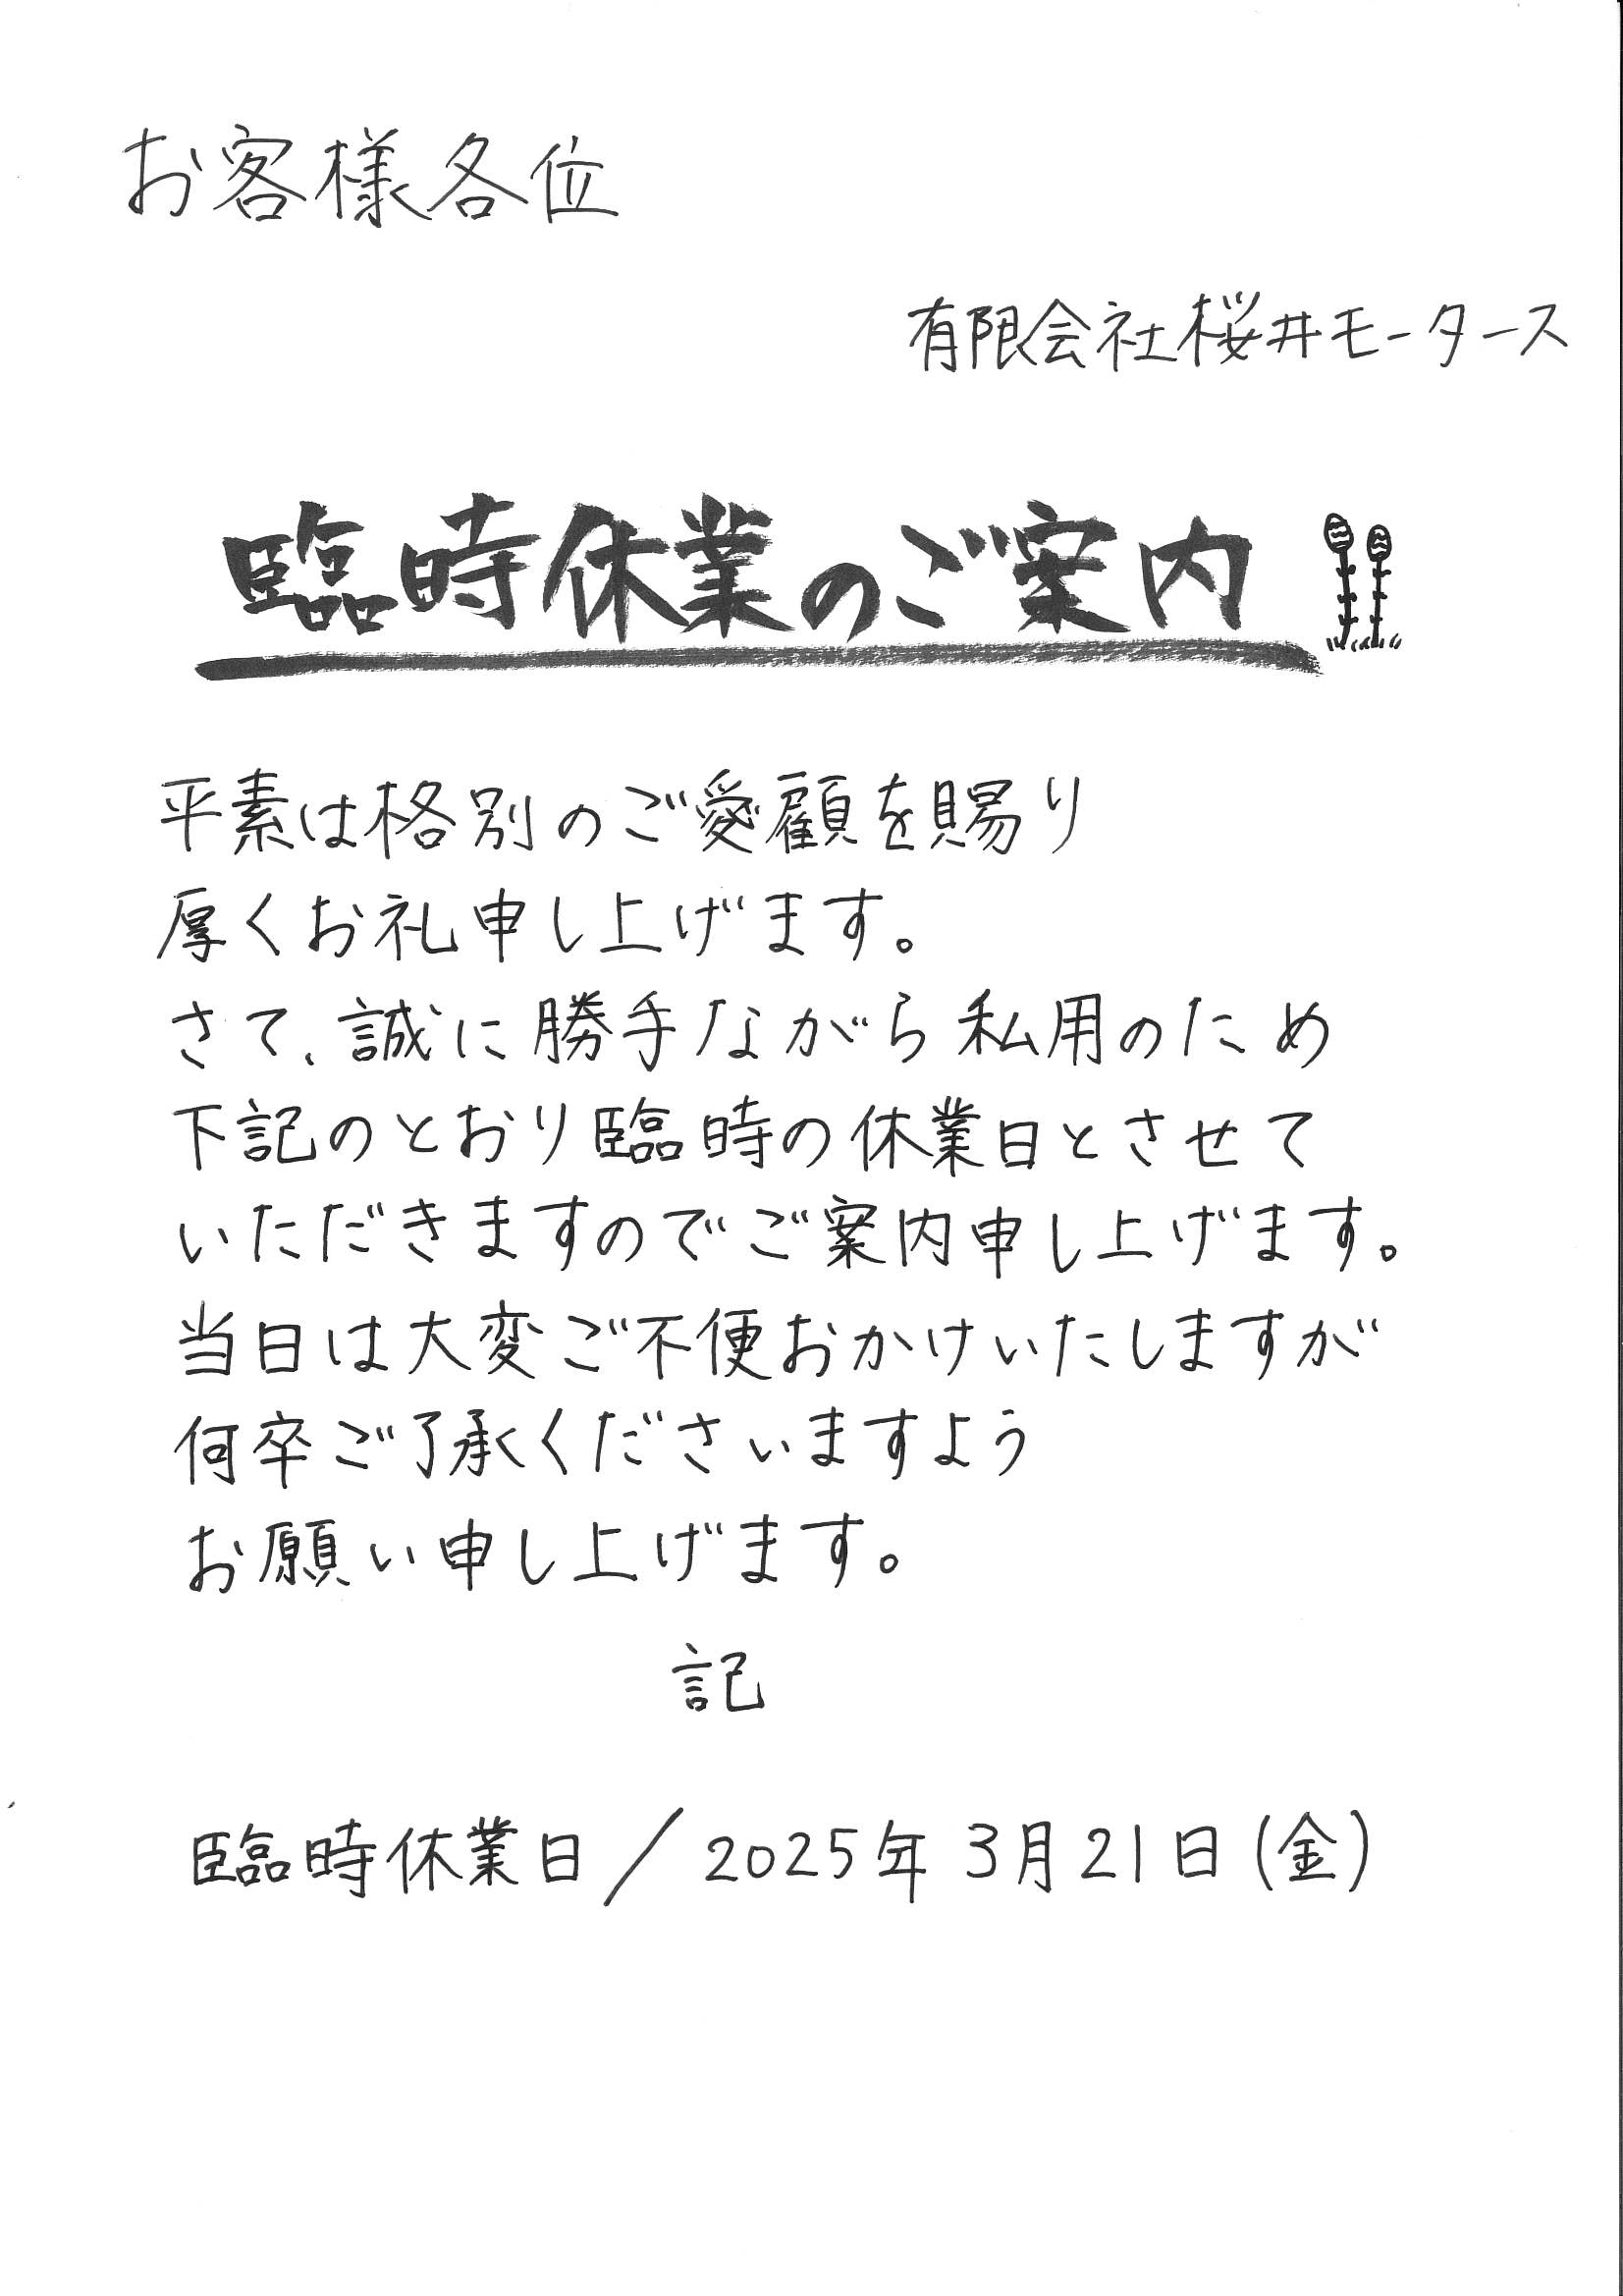 お客様各位
有限会社桜井モータース
臨時休業のご案内
平素は格別のご愛顧を賜り
厚くお礼申し上げます。
さて、誠に勝手ながら私用のため
下記のとおり臨時の休業日とさせて
いただきますのでご案内申し上げます。
当日は大変ご不便おかけいたしますが
何卒ご了承くださいますよう
お願い申し上げます。
記
臨時休業日／2025年3月21日(金)